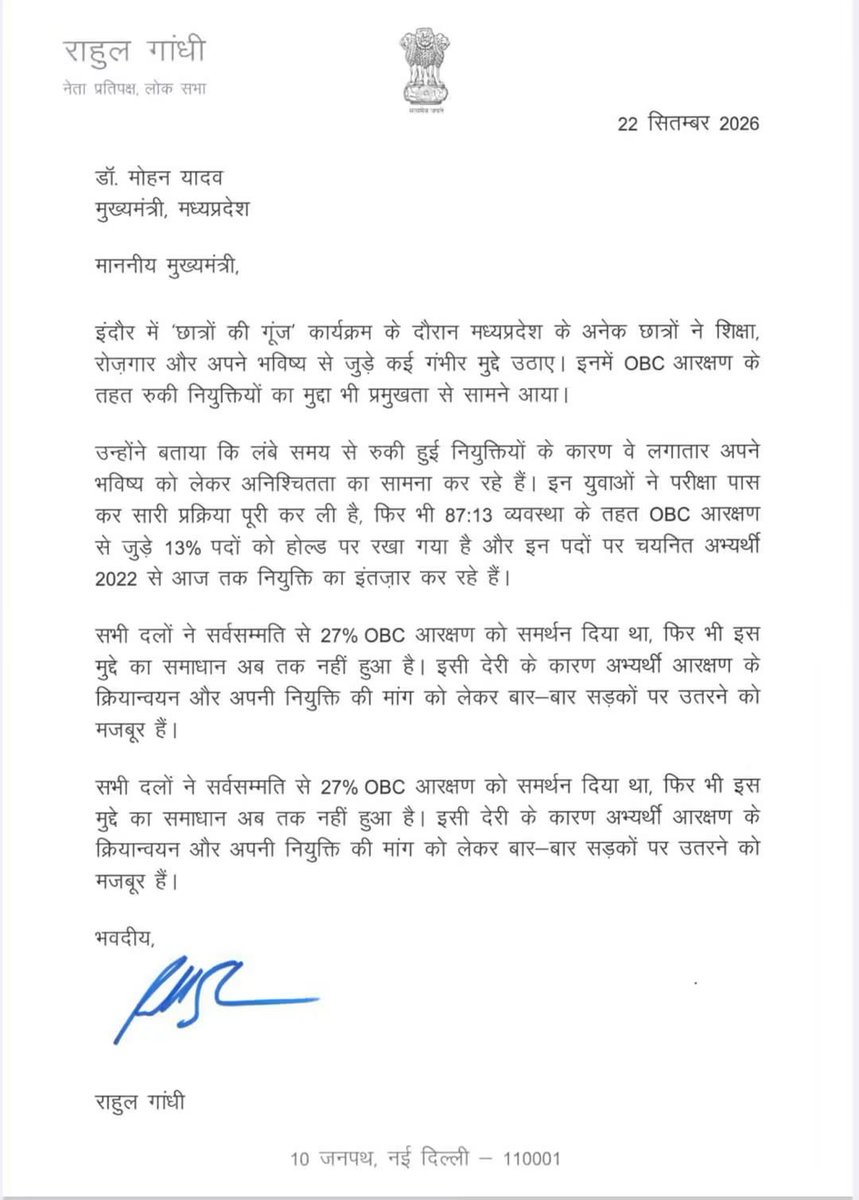 राहुल गांधी
नेता प्रतिपक्ष, लोक सभा
सत्यमेव जयते
22 सितम्बर 2026
डॉ. मोहन यादव
मुख्यमंत्री, मध्यप्रदेश
माननीय मुख्यमंत्री,
इंदौर में 'छात्रों की गूंज' कार्यक्रम के दौरान मध्यप्रदेश के अनेक छात्रों ने शिक्षा,
रोज़गार और अपने भविष्य से जुड़े कई गंभीर मुद्दे उठाए। इनमें OBC आरक्षण के
तहत रुकी नियुक्तियों का मुद्दा भी प्रमुखता से सामने आया।
उन्होंने बताया कि लंबे समय से रुकी हुई नियुक्तियों के कारण वे लगातार अपने
भविष्य को लेकर अनिश्चितता का सामना कर रहे हैं। इन युवाओं ने परीक्षा पास
कर सारी प्रक्रिया पूरी कर ली है, फिर भी 87:13 व्यवस्था के तहत OBC आरक्षण
से जुड़े 13% पदों को होल्ड पर रखा गया है और इन पदों पर चयनित अभ्यर्थी
2022 से आज तक नियुक्ति का इंतज़ार कर रहे हैं।
सभी दलों ने सर्वसम्मति से 27% OBC आरक्षण को समर्थन दिया था, फिर भी इस
मुद्दे का समाधान अब तक नहीं हुआ है। इसी देरी के कारण अभ्यर्थी आरक्षण के
क्रियान्वयन और अपनी नियुक्ति की मांग को लेकर बार–बार सड़कों पर उतरने को
मजबूर हैं।
सभी दलों ने सर्वसम्मति से 27% OBC आरक्षण को समर्थन दिया था, फिर भी इस
मुद्दे का समाधान अब तक नहीं हुआ है। इसी देरी के कारण अभ्यर्थी आरक्षण के
क्रियान्वयन और अपनी नियुक्ति की मांग को लेकर बार–बार सड़कों पर उतरने को
मजबूर हैं।
भवदीय,
राहुल गांधी
10 जनपथ, नई दिल्ली – 110001